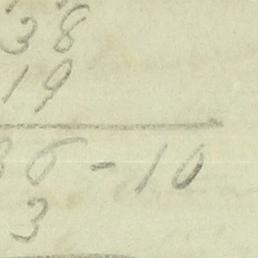 38
19
36-10
3